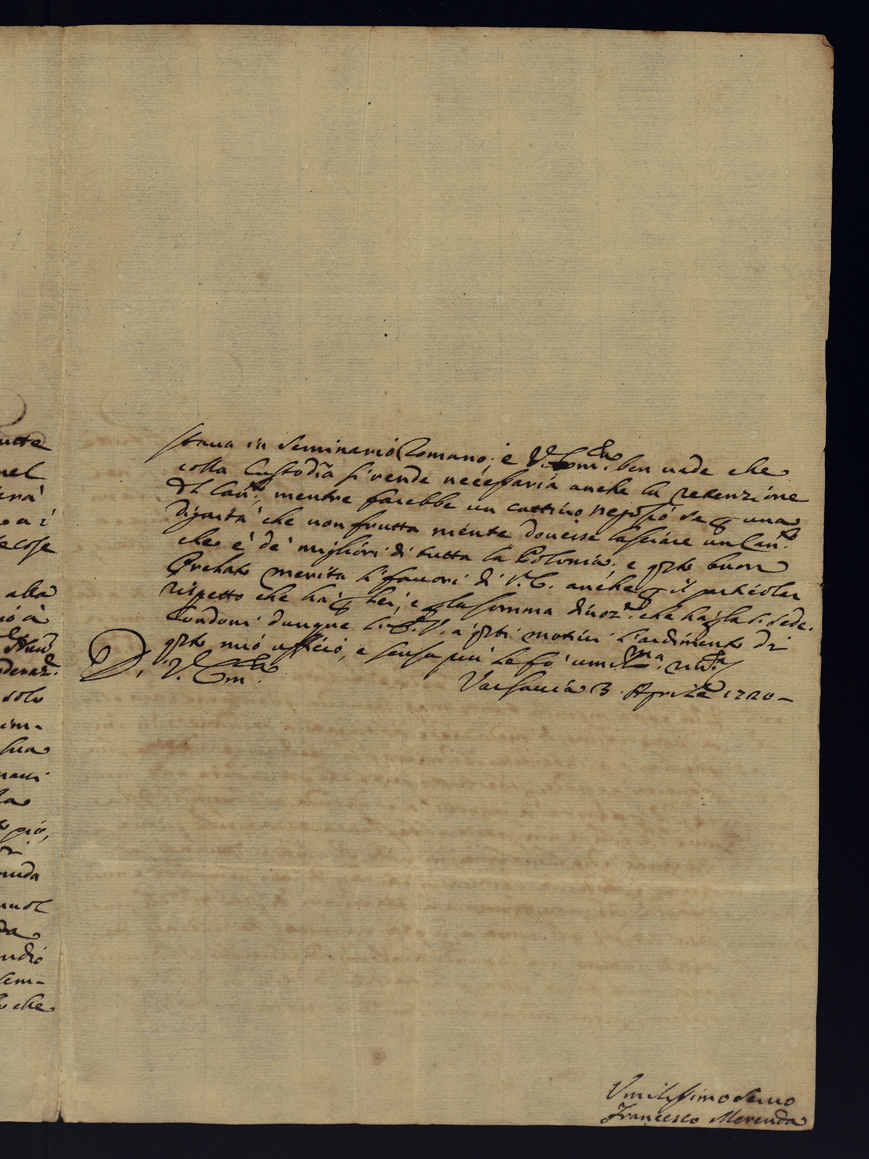 stava in Seminario Romano: e V. Em.za ben vede che
colla Custodia si rende necessaria anche la retenzione
del Can.to, mentre sarebbe un cattivo negozio se per una
dignità che non frutta niente dovesse lasciare un Can.to
che è de' migliori di tutta la Polonia, e questo buon
Prelato merita li favori di V. E. anche per il particolar
rispetto che ha per lei, e per la somma divoz.e che ha
Condoni dunque a questi motivi l'ardimento di
questo mio ufficio, e senza più le fò umil.ma riv.za
D. V. Em.za
Varsavia 3. Aprile 1720 -
Umilissimo Servo
Francesco Merenda
utte
nel
erà
o a i
lecose
alla
iò à
solo
im-
sua
la
sem-
che